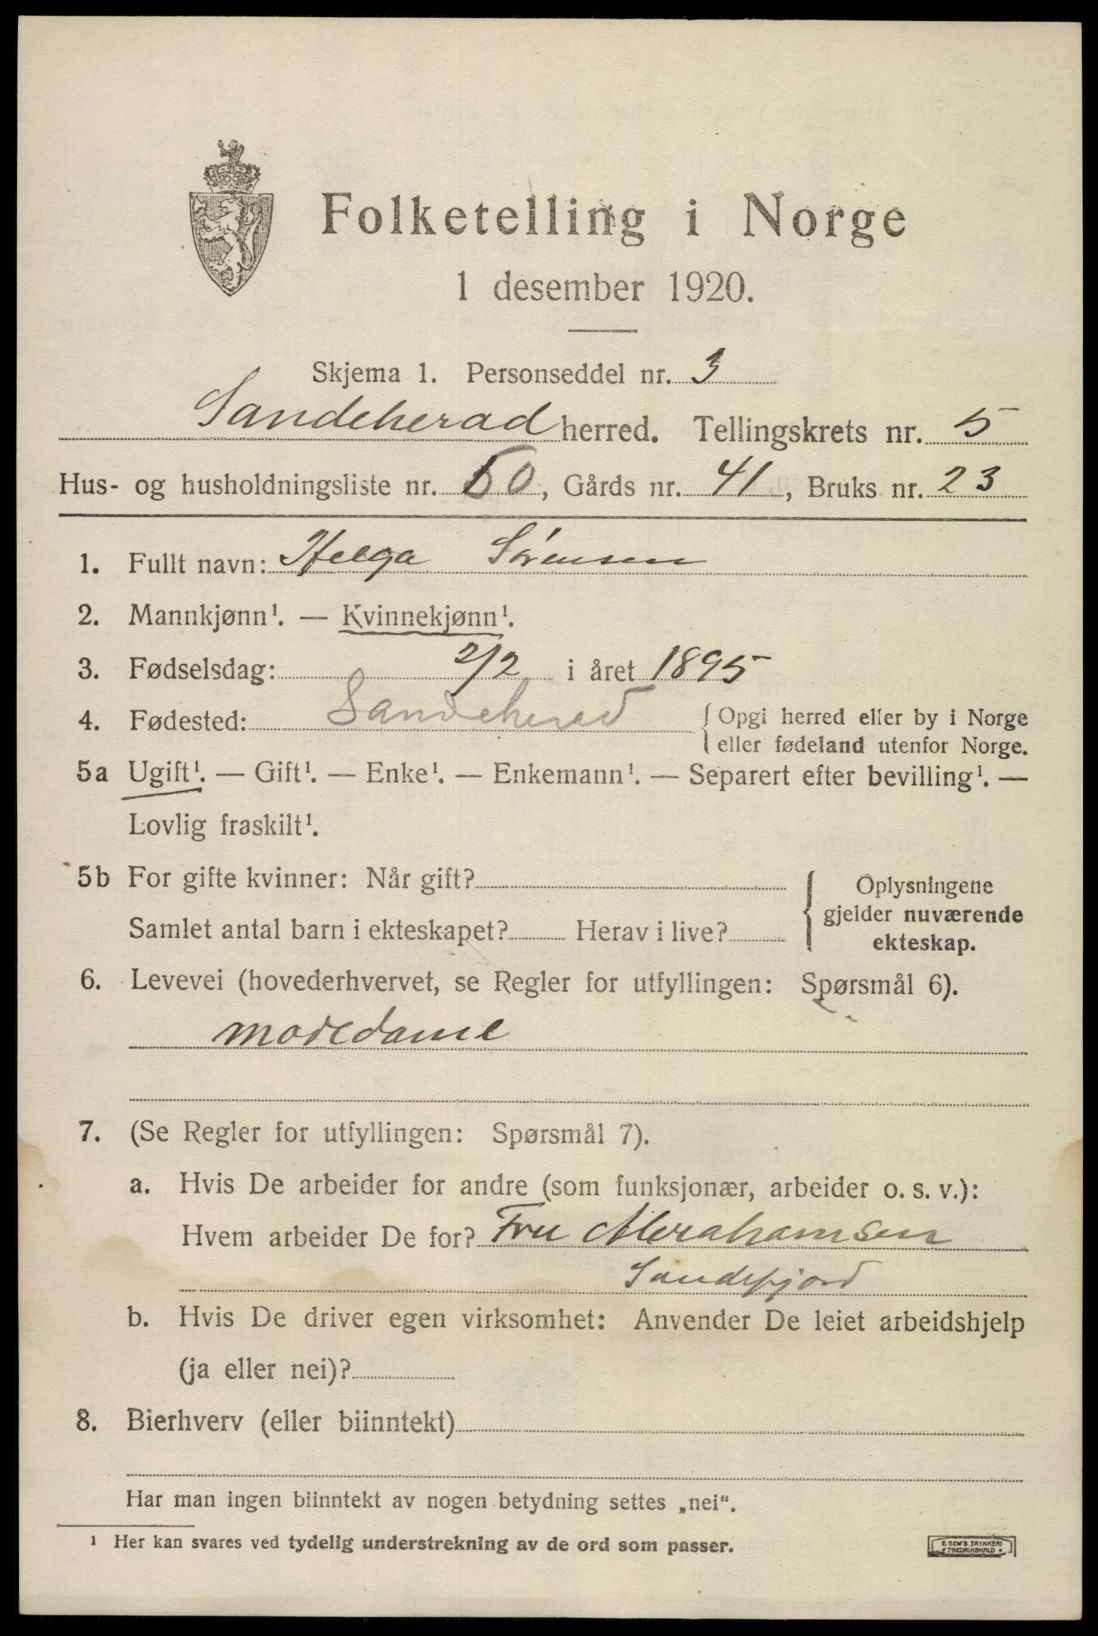 Folketelling i Norge
1 desember 1920.
Skjema 1. Personseddel nr. 3
Sandeherad herred. Tellingskrets nr. 5
Hus- og husholdningsliste nr. 50, Gårds nr. 41, Bruks nr. 23
1. Fullt navn: Helga Sørensen
2. Mannkjønn¹. — Kvinnekjønn¹.
3. Fødselsdag: 2/2 i året 1895
4. Fødested: Sandeherad { Opgi herred eller by i Norge
eller fødeland utenfor Norge.
5a Ugift¹. — Gift¹. — Enke¹. — Enkemann¹. — Separert efter bevilling¹. —
Lovlig fraskilt¹.
5b For gifte kvinner: Når gift?
Samlet antal barn i ekteskapet? Herav i live?
{ Oplysningene
gjelder nuværende
ekteskap.
6. Levevei (hovederhvervet, se Regler for utfyllingen: Spørsmål 6).
modedame
7. (Se Regler for utfyllingen: Spørsmål 7).
a. Hvis De arbeider for andre (som funksjonær, arbeider o. s. v.):
Hvem arbeider De for? Fru Abrahamsen
Sandefjord
b. Hvis De driver egen virksomhet: Anvender De leiet arbeidshjelp
(ja eller nei)?
8. Bierhverv (eller biinntekt)
Har man ingen biinntekt av nogen betydning settes „nei“.
¹ Her kan svares ved tydelig understrekning av de ord som passer.
E. SEM'S TRYKKERI
FREDRIKSHALD